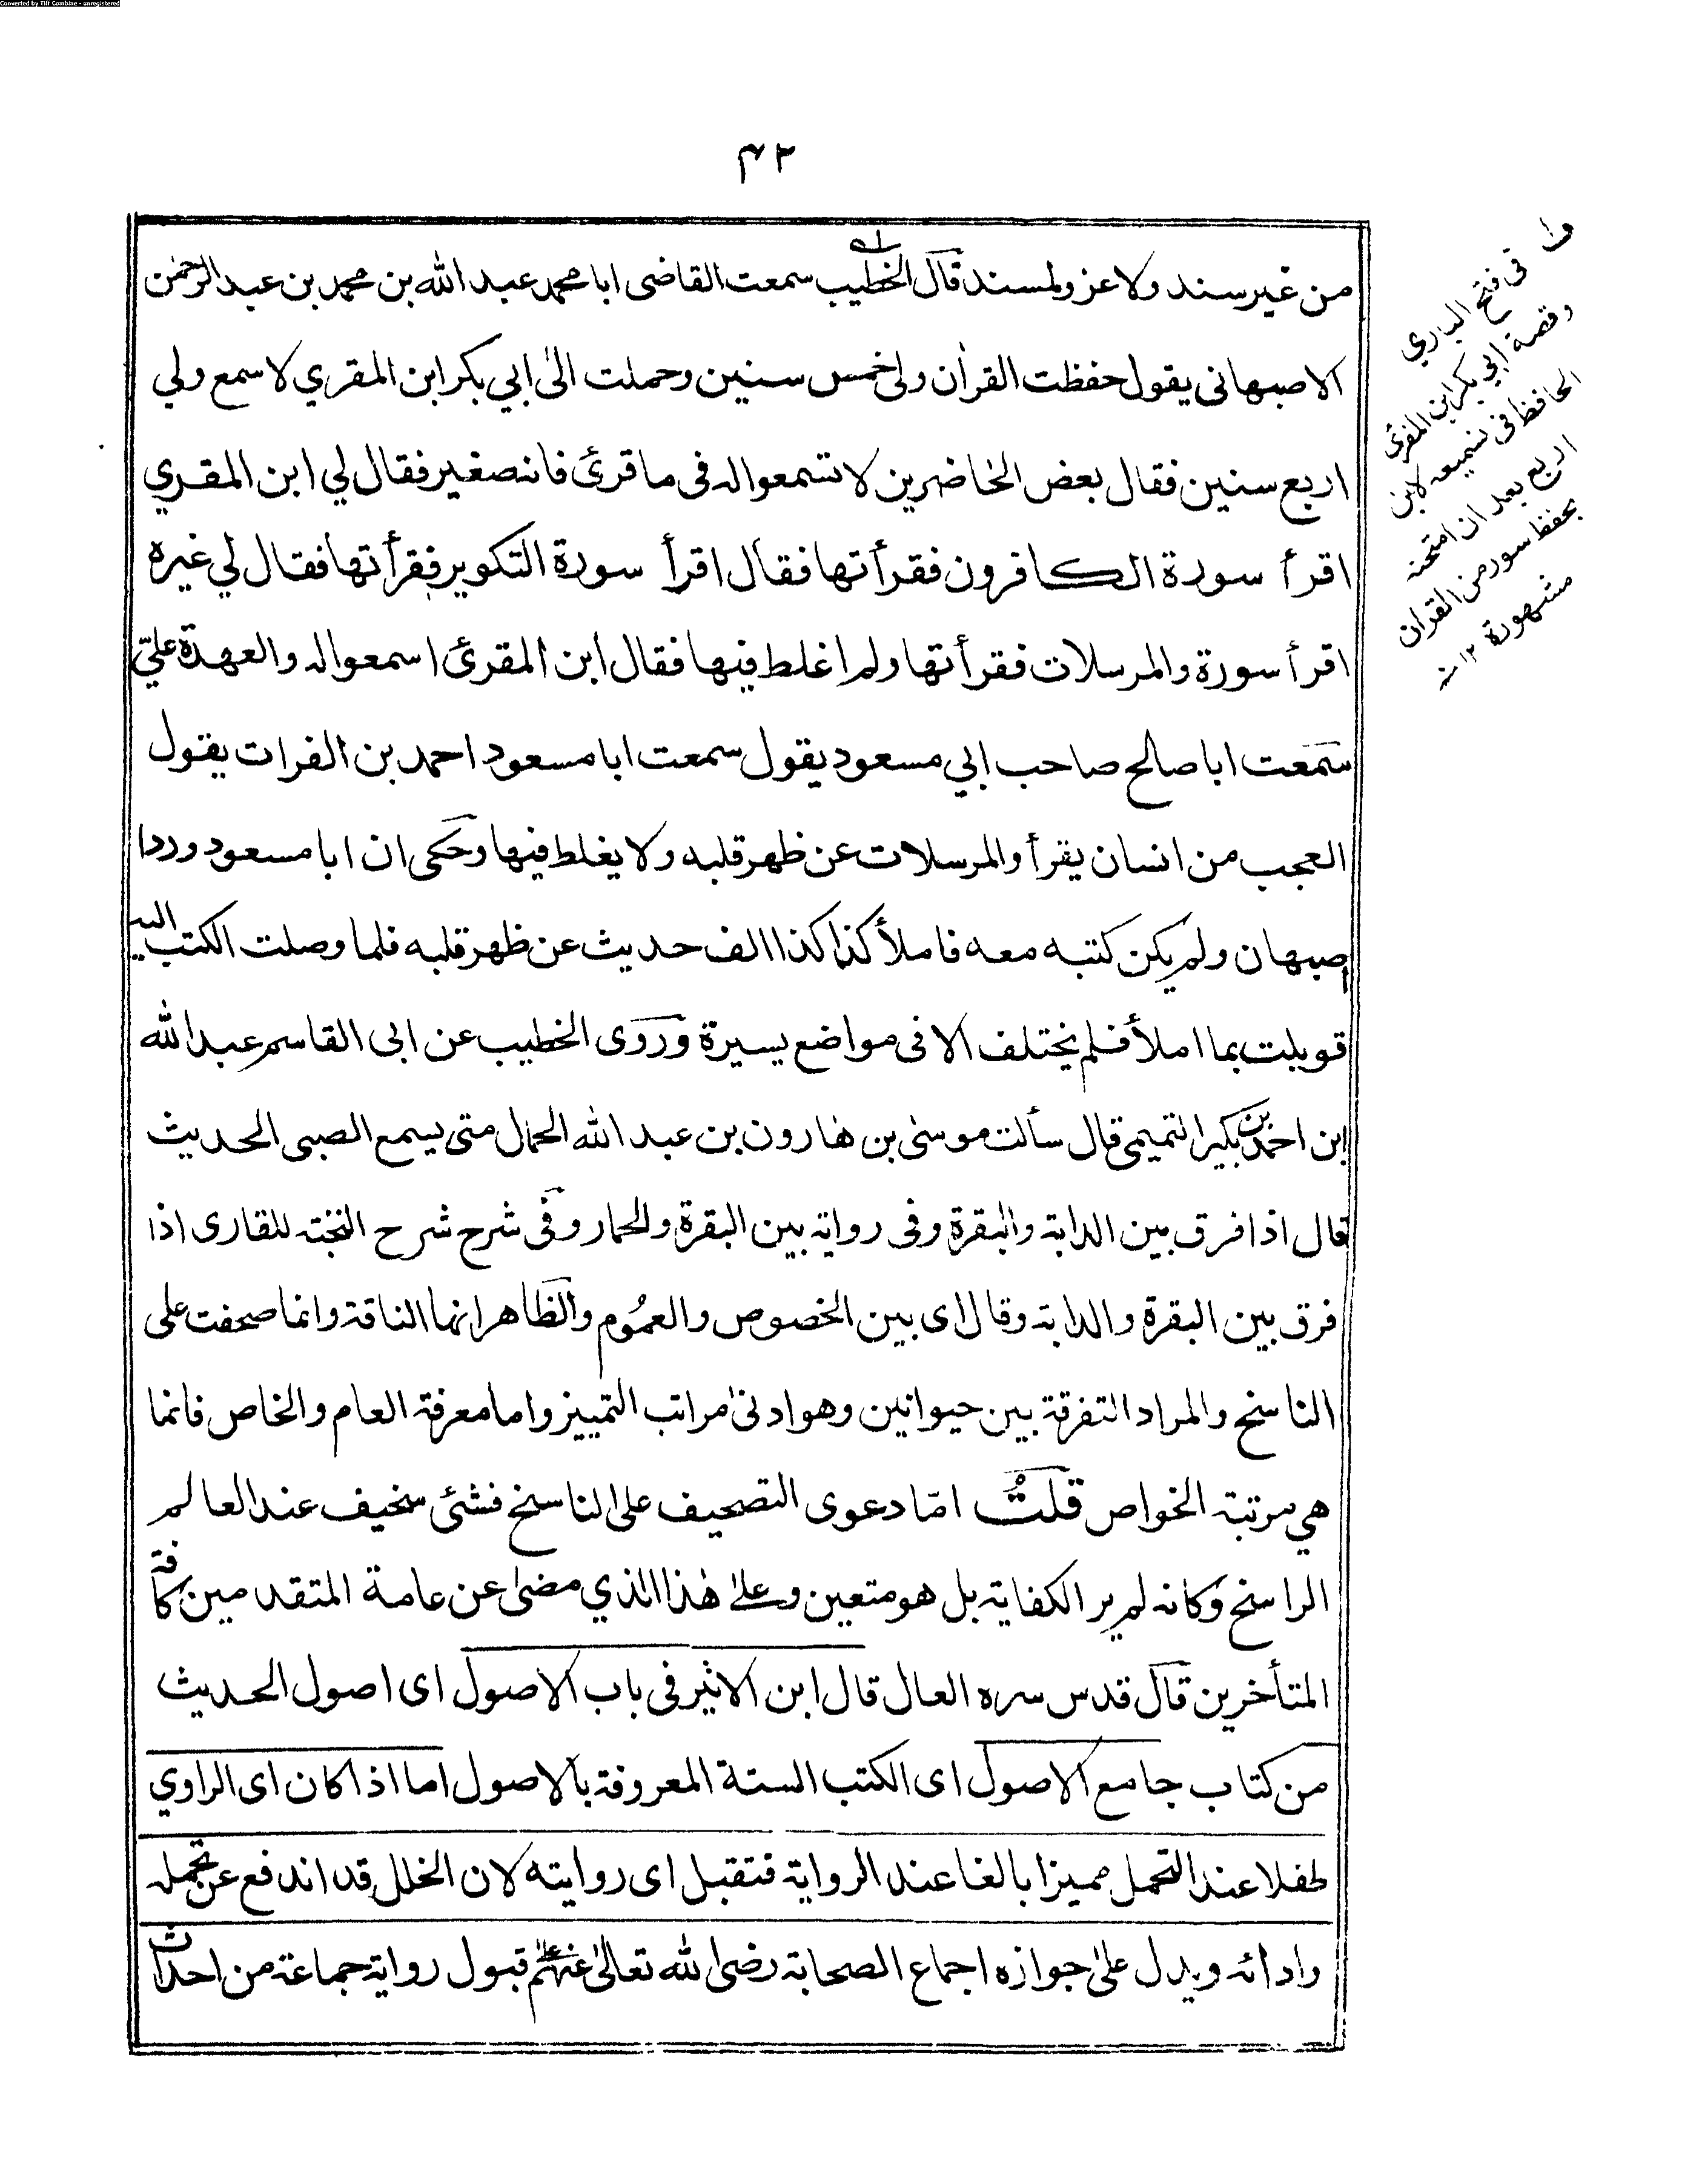 Converted by Tiff Combine - unregistered
۴۲
من غير سند ولا عز ولمسند قال الخطيب سمعت القاضى ابا محمد عبد الله بن محمد بن عبد الرحمٰن
الاصبهانى يقول حفظت القرأن ولى خمس سنين وحملت الىٰ ابي بكر ابن المقري لاسمع ولي
اربع سنين فقال بعض الحاضرين لا تسمعوا له فى ما قرئ فانه صغير فقال لي ابن المقري
اقرأ سورة الكافرون فقرأتها فقال اقرأ سورة التكوير فقرأتها فقال لي غيره
اقرأ سورة والمرسلات فقرأتها ولم اغلط فيها فقال ابن المقرئ اسمعوا له والعهدة عليّ
سمعت ابا صالح صاحب ابي مسعود يقول سمعت ابا مسعود احمد بن الفرات يقول
العجب من انسان يقرأ والمرسلات عن ظهر قلبه ولا يغلط فيها وحكى ان ابا مسعود ورد ا
صبهان ولم يكن كتبه معه فاملأ كذا كذا الف حديث عن ظهر قلبه فلما وصلت الكتب اليه
قوبلت بما املأ فلم يختلف الا فى مواضع يسيرة وروى الخطيب عن ابى القاسم عبد الله
ابن احمد بن بكير التميمى قال سألت موسىٰ بن هارون بن عبد الله الحمال متى يسمع الصبى الحديث
قال اذا فرق بين الدابة والبقرة وفى رواية بين البقرة والحمار وفى شرح شرح النخبة للقارى اذا
فرق بين البقرة والدابة وقال اى بين الخصوص والعمُوم والظاهر انها الناقة وانما صحفت على
الناسخ والمراد التفرقة بين حيوانين وهو ادنىٰ مراتب التمييز واما معرفة العام والخاص فانما
هي مرتبة الخواص قلتُ امّا دعوى التصحيف على الناسخ فشئ سخيف عند العالم
الراسخ وكانه لم ير الكفاية بل هو متعين وعلىٰ هٰذا الذي مضىٰ عن عامة المتقدمين كافة
المتأخرين قال قدس سره العال قال ابن الاثير فى باب الاصول اى اصول الحديث
من كتاب جامع الاصول اى الكتب الستة المعروفة بالاصول اما اذا كان اى الراوي
طفلا عند التحمل مميزا بالغا عند الرواية فتقبل اى روايته لان الخلل قد اندفع عن تحمله
وادائه ويدل علىٰ جوازه اجماع الصحابة رضى الله تعالىٰ عنهم علىٰ قبول رواية جماعة من احداث
فى فتح الباري
وقصة ابي بكر ابن المقرئ
الحافظ فى تسميعه لابن
اربع بعد ان امتحنه
بحفظ سور من القران
مشهورة ١٢ منه